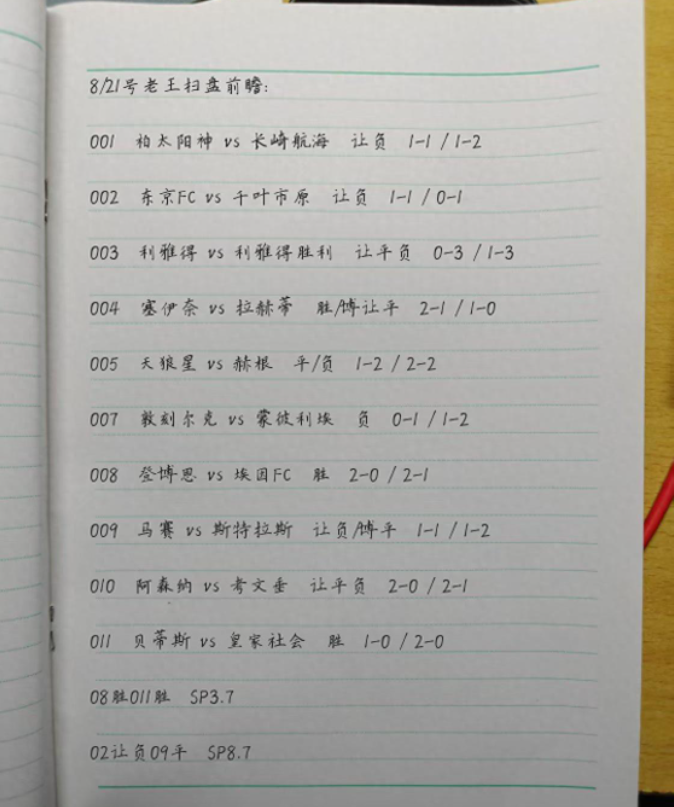 8/21号老王扫盘前瞻:
001 柏太阳神 vs 长崎航海 让负 1-1 / 1-2
002 东京FC vs 千叶市原 让负 1-1 / 0-1
003 利雅得 vs 利雅得胜利 让平负 0-3 / 1-3
004 塞伊奈 vs 拉赫蒂 胜/博让平 2-1 / 1-0
005 天狼星 vs 赫根 平/负 1-2 / 2-2
007 敦刻尔克 vs 蒙彼利埃 负 0-1 / 1-2
008 登博思 vs 埃因FC 胜 2-0 / 2-1
009 马赛 vs 斯特拉斯 让负/博平 1-1 / 1-2
010 阿森纳 vs 考文垂 让平负 2-0 / 2-1
011 贝蒂斯 vs 皇家社会 胜 1-0 / 2-0
08胜011胜 SP3.7
02让负09平 SP8.7